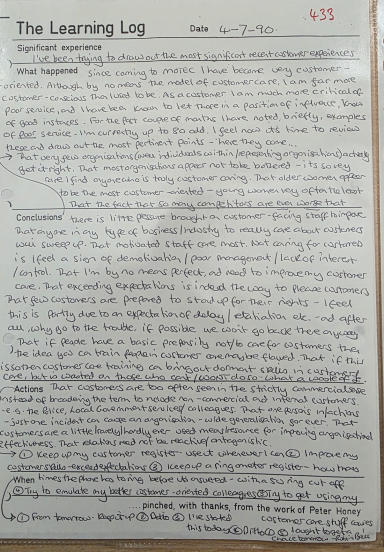 433
The Learning Log Date 4-7-90.
Significant experience
I've been trying to draw out the most significant recent customer experiences
What happened since coming to MOTEC I have become very customer-
oriented. Although by no means the model of customer care, I am far more
customer-conscious than I used to be. As a customer I am much more critical of
poor service, and I have been known to let those in a position of influence, know
of good instances. For the past couple of months I have noted, briefly, examples
of poor service - I'm currently up to 80 odd. I feel now it's time to review
these and draw out the most pertinent points - here they come...
→ That very few organisations (or individuals within/representing organisations) actively
get it right. That most organisations appear not to be bothered - it's so very
rare I find anyone who is truly customer caring. That older women appear
to be the most customer-oriented - young women very often the least
That the fact that so many competitors are even worse that
Conclusions there is little pressure brought on customer-facing staff to improve
That anyone in any type of business/industry to really care about customers
will sweep up. That motivated staff care most. Not caring for customers
is I feel a sign of demotivation/poor management/lack of interest
/control. That I'm by no means perfect, and need to improve my customer
care. That exceeding expectations is indeed the way to please customers
That few customers are prepared to stand up for their rights - I feel
this is partly due to an expectation of delay/retaliation etc. - and after
all, why go to the trouble, if possible we won't go back there anyway
That if people have a basic propensity not to care for customers then
the idea you can train people in customer care may be flawed. That if this
is so then customer care training can bring out dormant skills in customer
care, but is wasted on those who can't/won't do so - what a waste of £
Actions That customers are too often seen in the strictly commercial sense
instead of broadening the term to include non-commercial and internal customers
- e.g. the Police, Local Government services/colleagues. That one person's inactions
- just one incident can cause an organisation-wide generalisation for ever. That
customers are a little (very/hardly) ever used resource for improving organisational
effectiveness. That relations need not be reactive/antagonistic
→ ① Keep up my customer register - use it whenever I can ② Improve my
customer skills - exceed expectations ③ Keep up a ring meter register - how many
When times the phone has to ring before it's answered - with a 50 ring cut off
④ Try to emulate my better customer-oriented colleagues ⑤ Try to get using my
.....pinched, with thanks, from the work of Peter Honey
→ ① From tomorrow. Keep it up ② Ditto ③ I've started customer care stuff
this today ④ Ditto ⑤ I ought to get a
chance tomorrow -